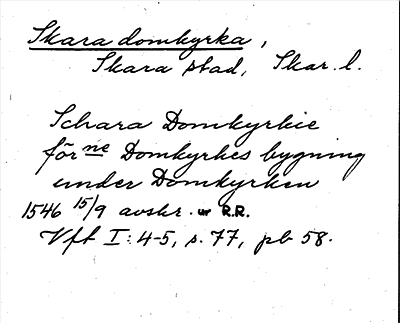 Skara domkyrka,
Skara stad, Skar. l.
Schara Domkyrkie
för ne Domkyrkes bygning
under Domkyrken
1546 15/9 avskr. ur R.R.
Vft I: 4-5, s. 77, pb 58.